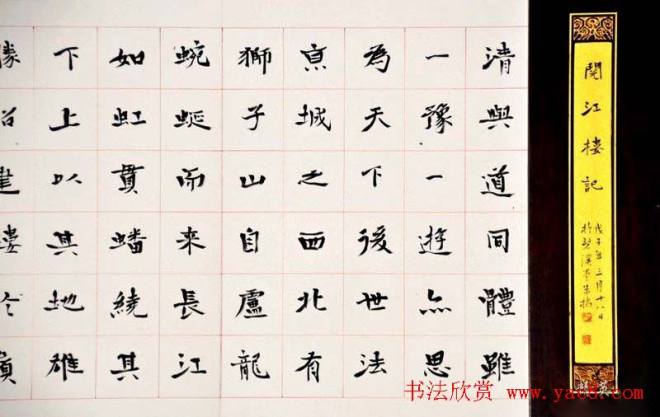 閱江樓記
戊子年三月十八日
清與道同體雖
一豫一遊亦思
為天下後世法
京城之西北有
獅子山自盧龍
蜿蜒而來長江
如虹貫蟠繞其
下上以其地雄
勝詔建樓於巔
书法欣赏 www.yac8.com